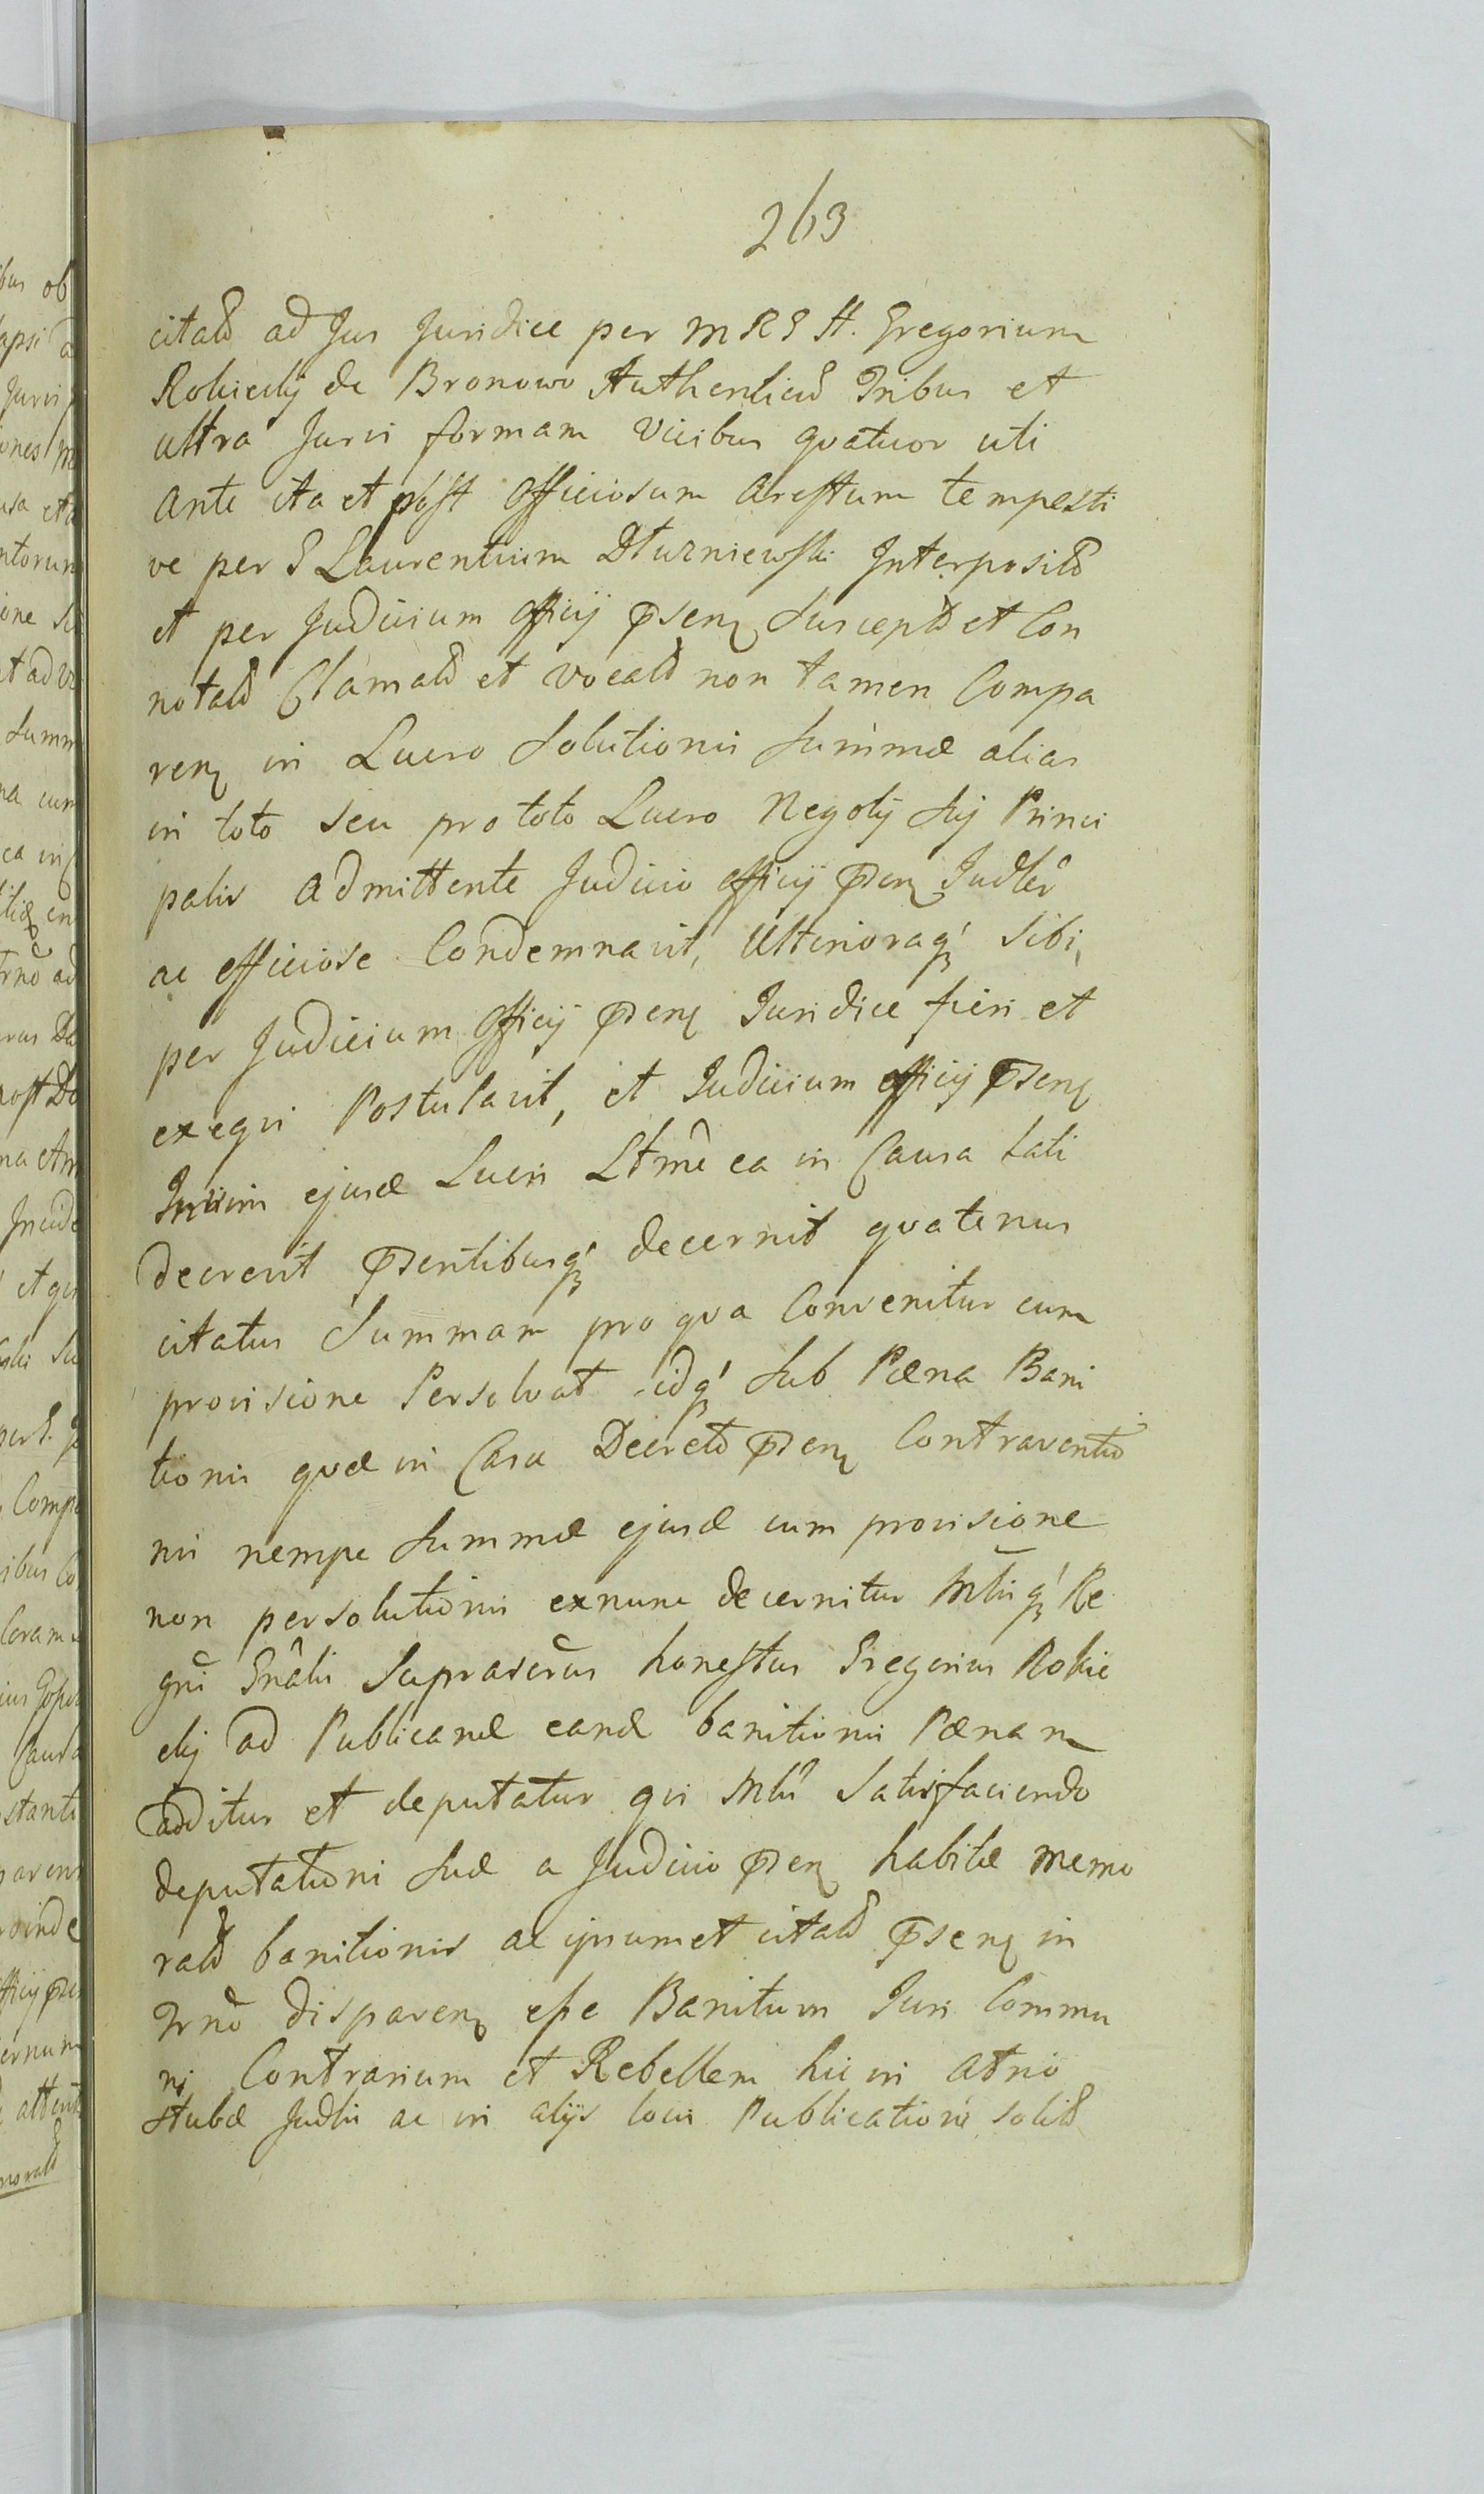 263
citatū ad Jus Juridice per MRG H. Gregorium
Rokicky de Bronowo Authenticū Tribus et
ultra Juris formam vicibus quatuor uti
ante ita et post officiosum arestum tempesti
ve per G Laurentium Dłuzniewski Interpositū
et per Judicium officij pnsenˢ susceptū et Con
notatū Clamatū et vocatū non tamen Compa
renˢ in Lucro Solutionis Summæ alias
in toto seu pro toto Lucro Negotij sui Princi
palis admittente Judicio officij pnsenˢ Judlr̃
ac officiose Condemnavit, Ulterioraq́ sibi,
per Judicium officij pnsenˢ Juridice fieri et
exequi Postulavit, et Judicium officij pnsenˢ
ejusd Lucri Ltmẽ ea in Causa lati
decrevit pnsentibusq́ decernit quatenus
citatus Summam pro qva Convenitur cum
provisione Persolvat idq́ sub Pæna Bani
tionis qvæ in Casu Decretū pnsenˢ Contraventio
nis nempe Summæ ejusd cum provisione
non persolutionis exnunc decernitur Mtrisq́ Re
gni Gnãlis Suprascrus honestus Gregorius Rokic
ky ad Publicand eand banitionis Pænam
additur et deputatur qui Mtrii satisfaciendo
deputationi suæ a Judicio pnsenˢ habitæ memo
ratū banitionis ac ipsumet citatū pnsenˢ in
Trnõ disparenˢ esse Banitum Juri Commu
ni Contrarium et Rebellem hic in atrio
stubæ Judlis ac in alijs locis Publicationi solitū